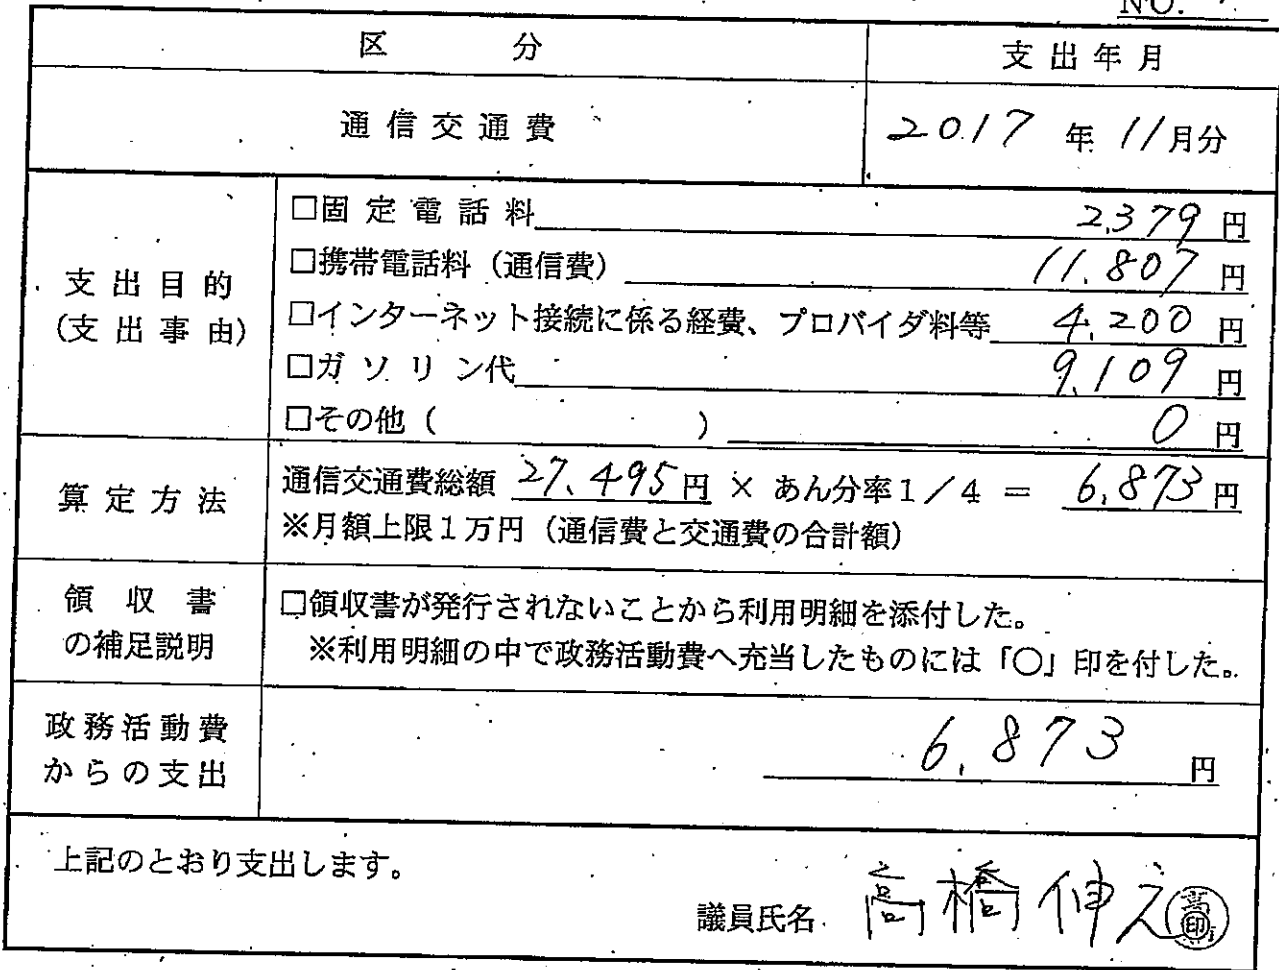 NO.
区分 支出年月
通信交通費 2017年11月分
支出目的
(支出事由)
□固定電話料 2,379円
□携帯電話料（通信費） 11,807円
□インターネット接続に係る経費、プロバイダ料等 4,200円
□ガソリン代 9,109円
□その他（ ） 0円
算定方法
通信交通費総額 27,495円 × あん分率1／4 ＝ 6,873円
※月額上限1万円（通信費と交通費の合計額）
領収書
の補足説明
□領収書が発行されないことから利用明細を添付した。
※利用明細の中で政務活動費へ充当したものには「○」印を付した。
政務活動費
からの支出
6,873円
上記のとおり支出します。
議員氏名 高橋伸之 印